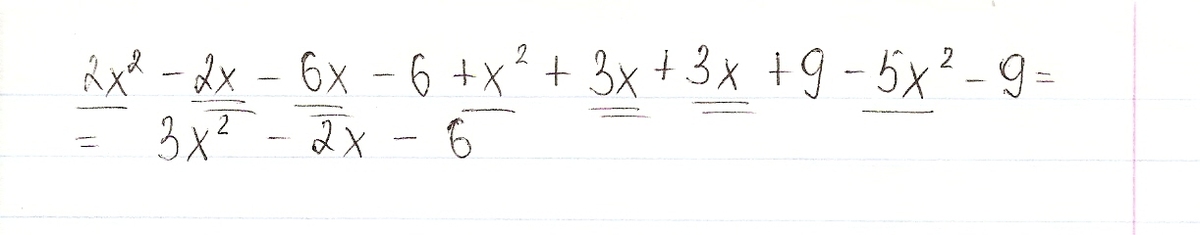 2x² - 2x - 6x - 6 + x² + 3x + 3x + 9 - 5x² - 9 =
= 3x² - 2x - 6